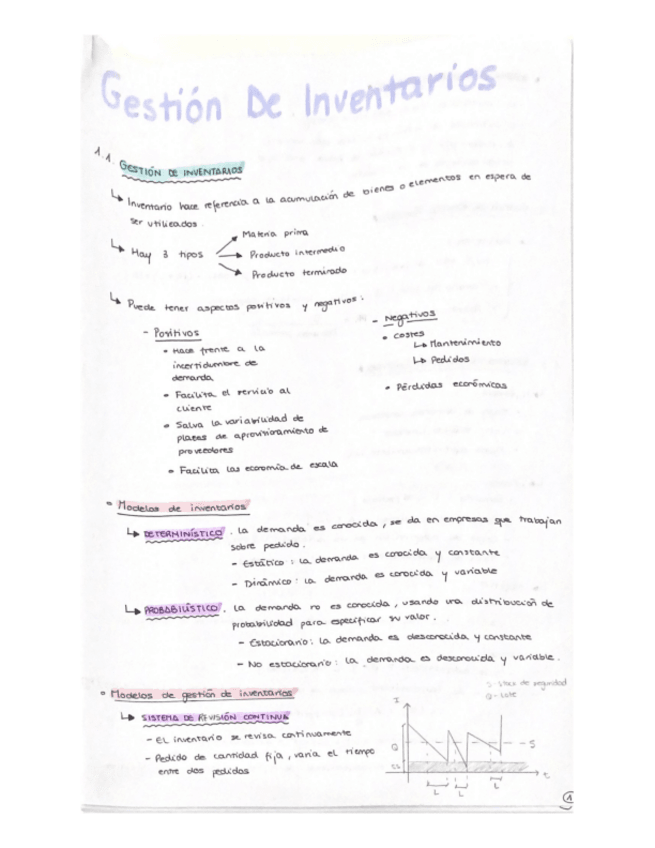 Gestión De Inventarios
1.1. GESTIÓN DE INVENTARIOS
↳ Inventario hace referencia a la acumulación de bienes o elementos en espera de
ser utilizados.
↳ Hay 3 tipos
Materia prima
Producto intermedio
Producto terminado
↳ Puede tener aspectos positivos y negativos:
- Positivos
• Hace frente a la
incertidumbre de
demanda
• Facilita el servicio al
cliente
• Salva la variabilidad de
plazas de aprovisionamiento de
proveedores
• Facilita las economía de escala
- Negativos
• costes
↳ Mantenimiento
↳ Pedidos
• Pérdidas económicas
• Modelos de inventarios
↳ DETERMINÍSTICO. La demanda es conocida, se da en empresas que trabajan
sobre pedido.
- Estático: la demanda es conocida y constante
- Dinámico: la demanda es conocida y variable
↳ PROBABILÍSTICO. La demanda no es conocida, usando una distribución de
probabilidad para especificar su valor.
- Estacionario: la demanda es desconocida y constante
- No estacionario: la demanda es desconocida y variable.
• Modelos de gestión de inventarios
↳ SISTEMA DE REVISIÓN CONTINUA
- El inventario se revisa continuamente
- Pedido de cantidad fija, varía el tiempo
entre dos pedidos
S- stock de seguridad
Q- Lote
I
Q
S
t
L L L
1